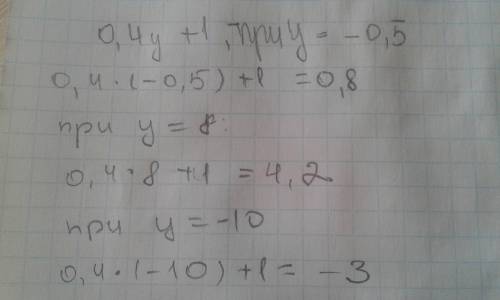 0,4y +1, при y = -0,5
0,4 · (-0,5) +1 = 0,8
при y = 8:
0,4 · 8 +1 = 4,2
при y = -10
0,4 · (-10) +1 = -3